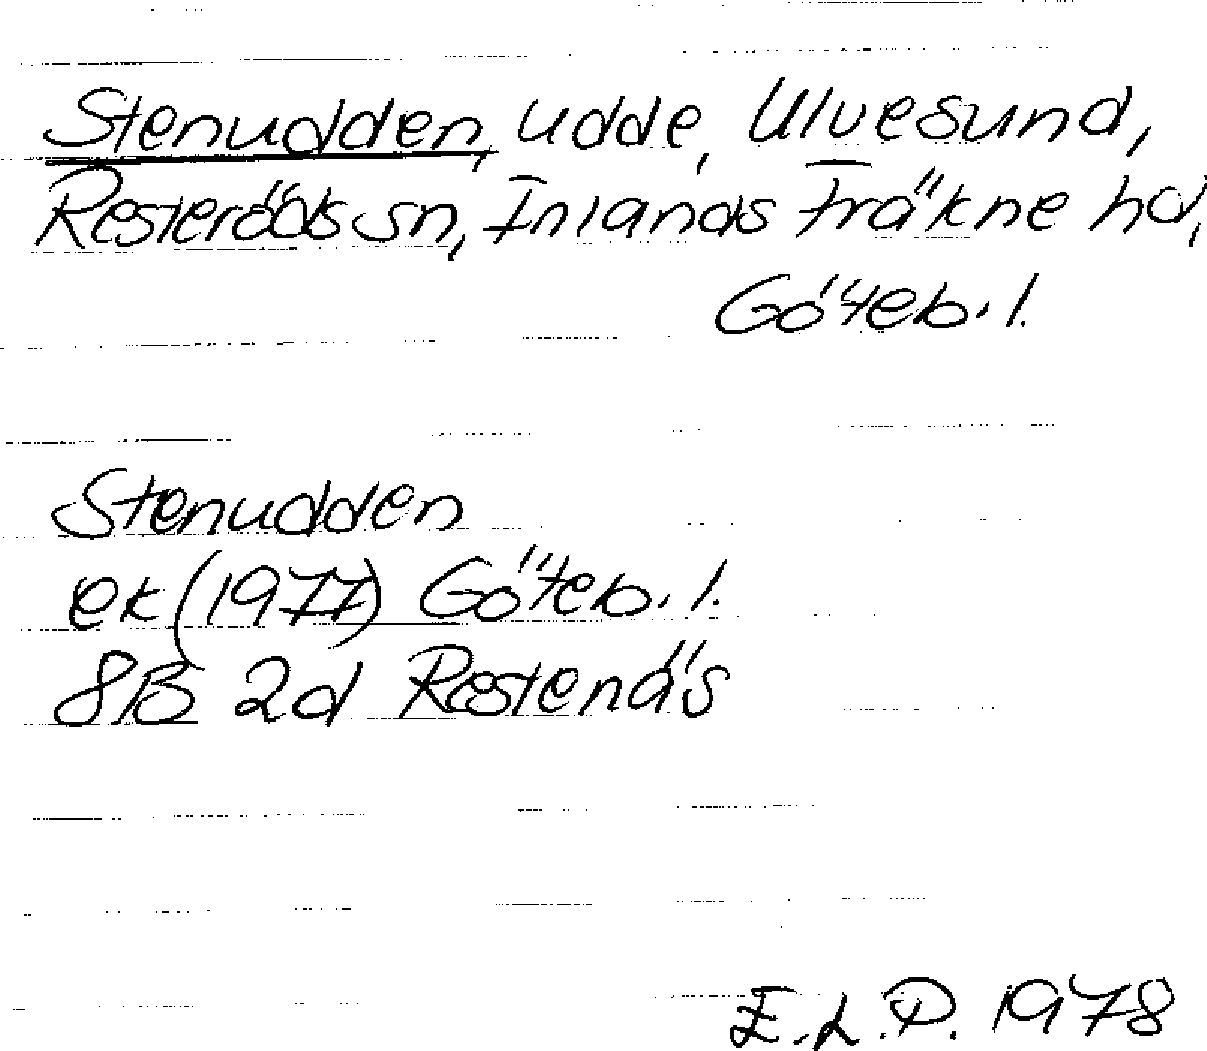 Stenudden, udde, Ulvesund,
Resteröds sn, Inlands Fräkne hd,
Göteb. l.
Stenudden
ek (1977) Göteb. l.
8B 2d Restenäs
E.L.P. 1978